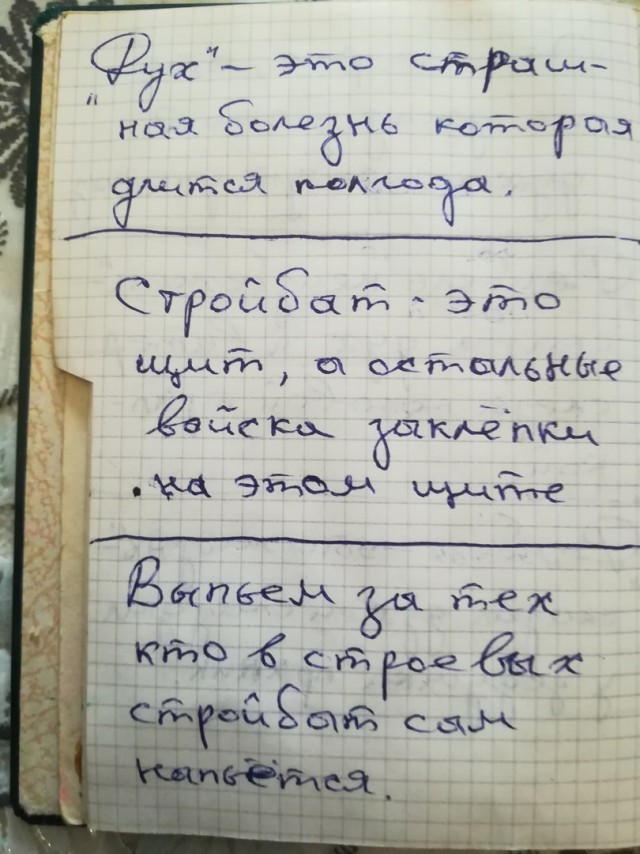 „Дух“ – это страш-
ная болезнь которая
длится полгода.
Стройбат - это
щит, а остальные
войска заклёпки
на этом щите
Выпьем за тех
кто в строевых
стройбат сам
напьётся.